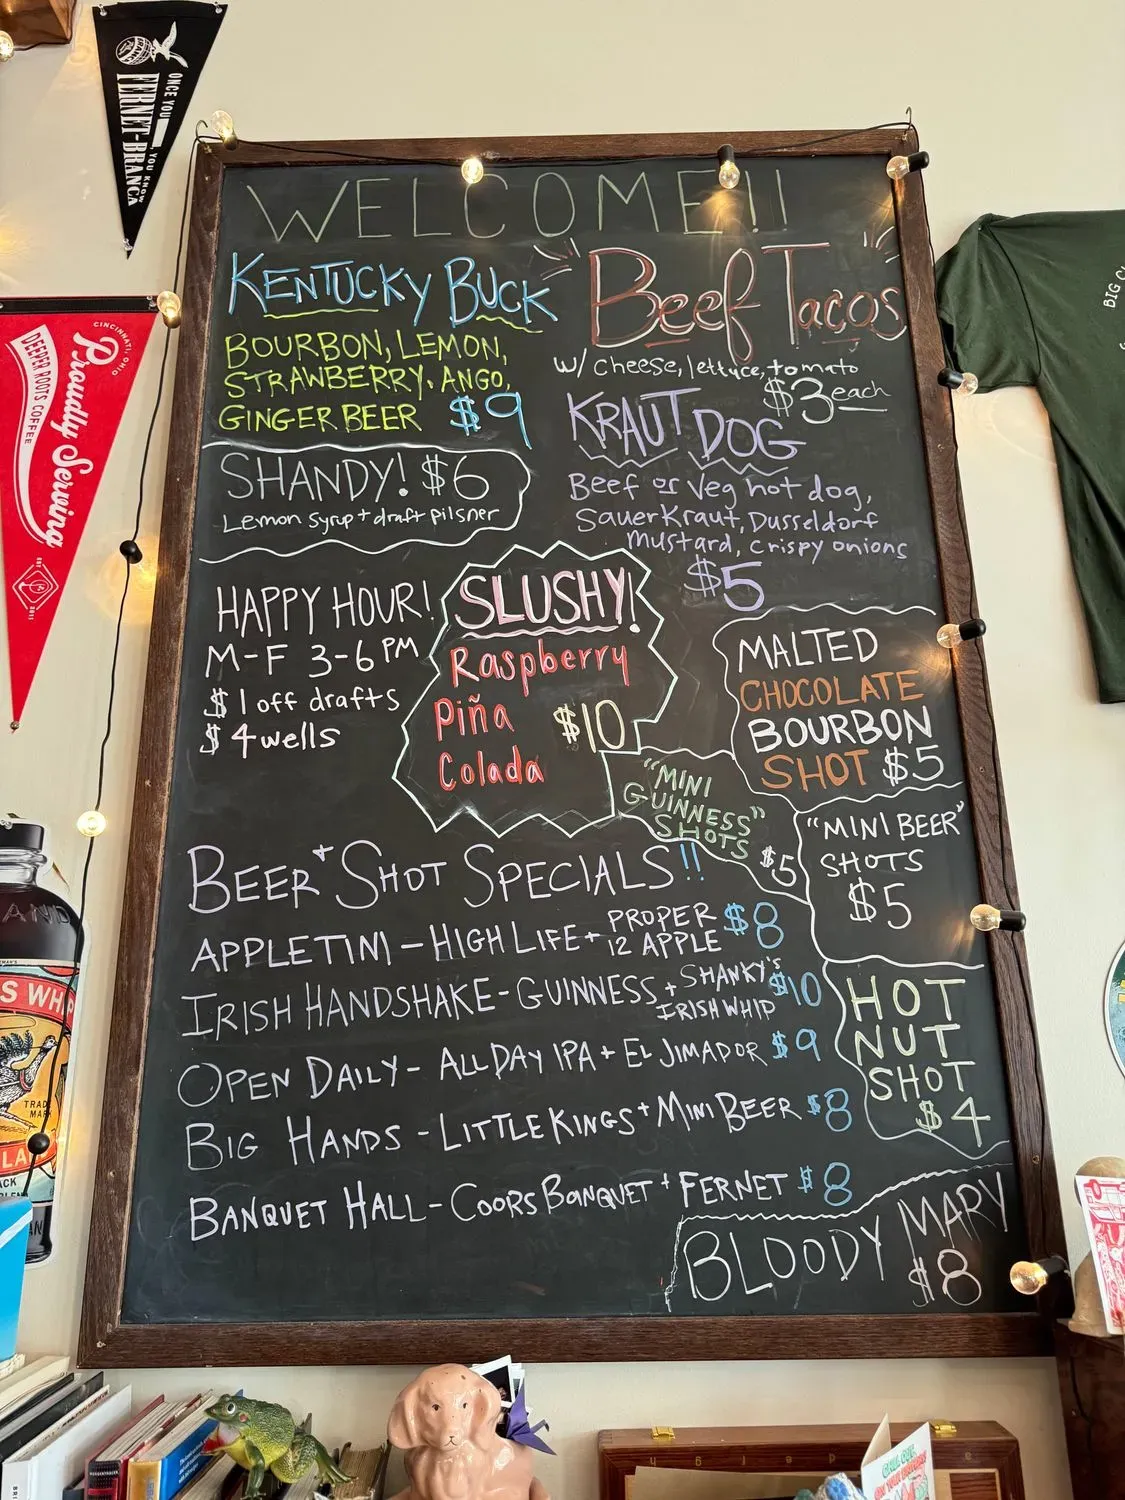 ONCE YOU
YOU KNOW
FERNET-BRANCA
WELCOME!!
KENTUCKY BUCK
BOURBON, LEMON,
STRAWBERRY, ANGO,
GINGER BEER $9
SHANDY! $6
Lemon syrup + draft pilsner
"Beef Tacos"
w/ cheese, lettuce, tomato
$3 each
KRAUT DOG
Beef or Veg hot dog,
SauerKraut, Dusseldorf
Mustard, crispy onions
$5
HAPPY HOUR!
M-F 3-6 PM
$1 off drafts
$4 wells
SLUSHY!
Raspberry
Piña
Colada
$10
MALTED
CHOCOLATE
BOURBON
SHOT $5
"MINI
GUINNESS"
SHOTS
$5
"MINI BEER"
SHOTS
$5
BEER + SHOT SPECIALS!!
APPLETINI - HIGH LIFE + PROPER 12 APPLE $8
IRISH HANDSHAKE - GUINNESS + SHANKY'S IRISH WHIP $10
OPEN DAILY - ALL DAY IPA + EL JIMADOR $9
BIG HANDS - LITTLE KINGS + MINI BEER $8
BANQUET HALL - COORS BANQUET + FERNET $8
HOT
NUT
SHOT
$4
BLOODY MARY
$8
CINCINNATI, OHIO
Proudly Serving
DEEPER ROOTS COFFEE
EST
2011
BIG
AND
S WH
TRADE
MARK
LA
ACK